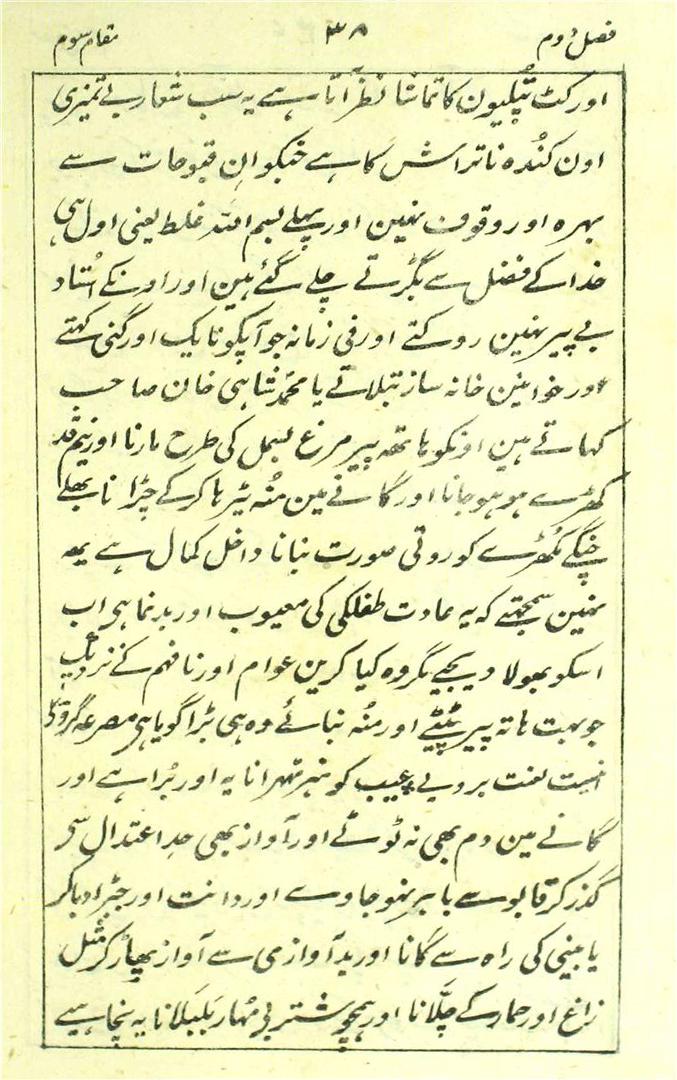 فصل دوم ۳۸ مقام سوم
اور کٹ پُتلیون کا تماشا نظر آتا ہے یہ سب شعار بے تمیزی
اون کُندہ ناتراش کا ہے جنکو ان قبوحات سے
بہرہ اور وقوف نہین اور پہلے بسم اللہ غلط یعنی اول ہی
خدا کے فضل سے بگڑتے چلے گئے ہین اور اونکے اُستاد
بے پیر نہین روکتے اور فی زمانہ جو آپکو نایک اور گنی کہتے
اور خواتین خانہ ساز بتلاتے یا محمد شاہی خان صاحب
کہاتے ہین اونکو ہاتھ پیر مرغ بسمل کی طرح مارنا اور نیم قد
کھڑے ہو ہو جانا اور گانے مین مُنہ ٹیڑہا کرکے چڑانا بھلے
چنگے مُکھڑے کو روتی صورت بنانا داخل کمال ہے یہہ
نہین سمجھتے کہ یہ عادت طفلکی کی معیوب اور بدنما ہی اب
اسکو بھولا دیجیے مگر وہ کیا کرین عوام اور نافہم کے نزدیک
جو بہت ہاتہ پیر پیٹے اور مُنہ بنائے وہ ہی بڑا گویا ہی مصرعہ گر تو
انیست لعنت بر وبے عیب کو ہنر ٹہرانا یہ اور بُرا ہے اور
گانے مین دم بھی نہ ٹوٹے اور آواز بھی حد اعتدال سی
گذر کر قابو سے باہر نہو جاوے اور دانت اور جبڑا دباکر
یا بینی کی راہ سے گانا اور بد آوازی سے آواز پھاڑ کر مثل
زاغ اور حمار کے چلّانا اور ہمچو شتر بی مُہار بَلبَلانا یہ نچاہیے